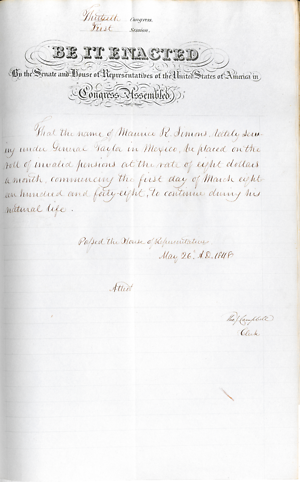 Thirtieth Congress.
First Session.
BE IT ENACTED
By the Senate and House of Representatives of the United States of America in
Congress Assembled
That the name of Maurice K. Simons, lately serv
ing under General Taylor in Mexico, be placed on the
roll of invalid pensions at the rate of eight dollars
a month, commencing the first day of March eight-
een hundred and forty-eight, to continue during his
natural life.
Passed the House of Representatives
May 26, A.D. 1848.
Attest
Campbell
Clerk